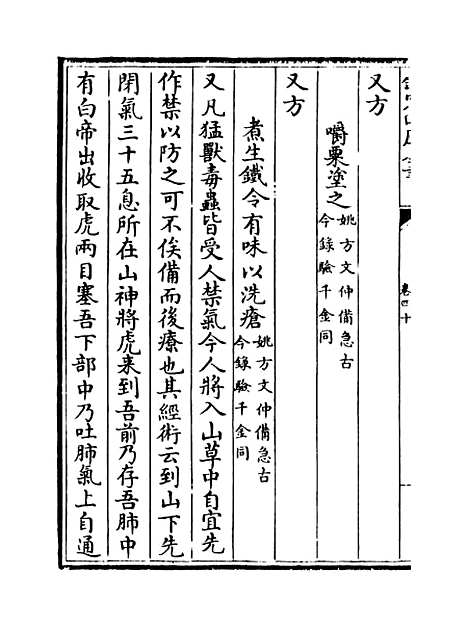 又方
嚼粟塗之姚方文仲備急古
今錄驗千金同
又方
煮生鐵令有味以洗瘡姚方文仲備急古
今錄驗千金同
又凡猛獸毒蟲皆受人禁氣今人將入山草中自宜先
作禁以防之可不俟備而後療也其經術云到山下先
閉氣三十五息所在山神將虎来到吾前乃存吾肺中
有白帝出收取虎兩目塞吾下部中乃吐肺氣上自通
卷四十